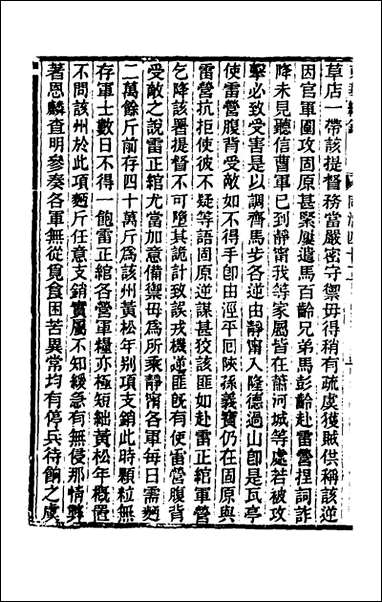 草店一帶該提督務當嚴密守禦毋得稍有疏虞獲賊供稱該逆
因官軍圍攻固原甚緊屢遣馬百齡兄弟馬彭齡赴雷營捏詞詐
降未見聽信曹軍已到靜甯我等家屬皆在蕭河城等處若被攻
擊必致受害是以調齊馬步各逆由靜甯入隆德過山卽是瓦亭
使雷營腹背受敵如不得手卽由涇平回陝孫義寶仍在固原與
雷營抗拒使彼不疑等語固原逆謀甚狡該匪如赴雷正綰軍營
乞降該署提督不可墮其詭計致誤戎機逆匪旣有使雷營腹背
受敵之說雷正綰尤當加意備禦毋爲所乘靜甯各軍每日需麪
二萬餘斤前存四十萬斤爲該州黃松年別項支銷此時顆粒無
存軍士數日不得一飽雷正綰各營軍糧亦極短絀黃松年槪置
不問該州於此項麪斤任意支銷實屬不知緩急有無侵那情弊
著恩麟查明參奏各軍無從覓食困苦異常均有停兵待餉之虞